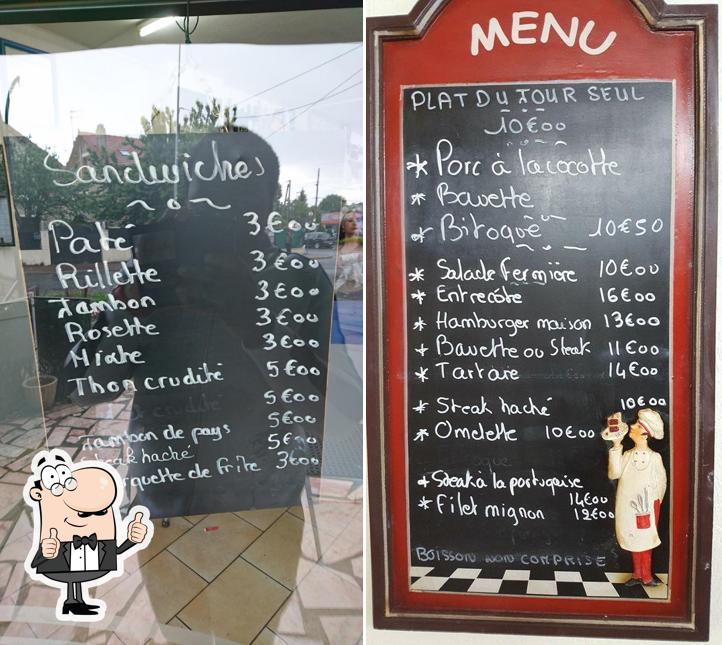 Sandwiches
Paté 3€00
Rillette 3€00
Jambon 3€00
Rosette 3€00
Mixte 3€00
Thon crudité 5€00
5€00
Jambon de pays 5€00
Steak haché 5€00
de frite 3€00
MENU
PLAT DU JOUR SEUL
10€00
* Porc à la cocotte
* Bavette
* Bitoque 10€50
* Salade Fermière 10€00
* Entrecôte 16€00
* Hamburger maison 13€00
* Bavette ou Steak 11€00
* Tartare 14€00
* Steak haché 10€00
* Omelette 10€00
* Steak à la portugaise
14€00
* Filet mignon 12€00
BOISSON NON COMPRISE